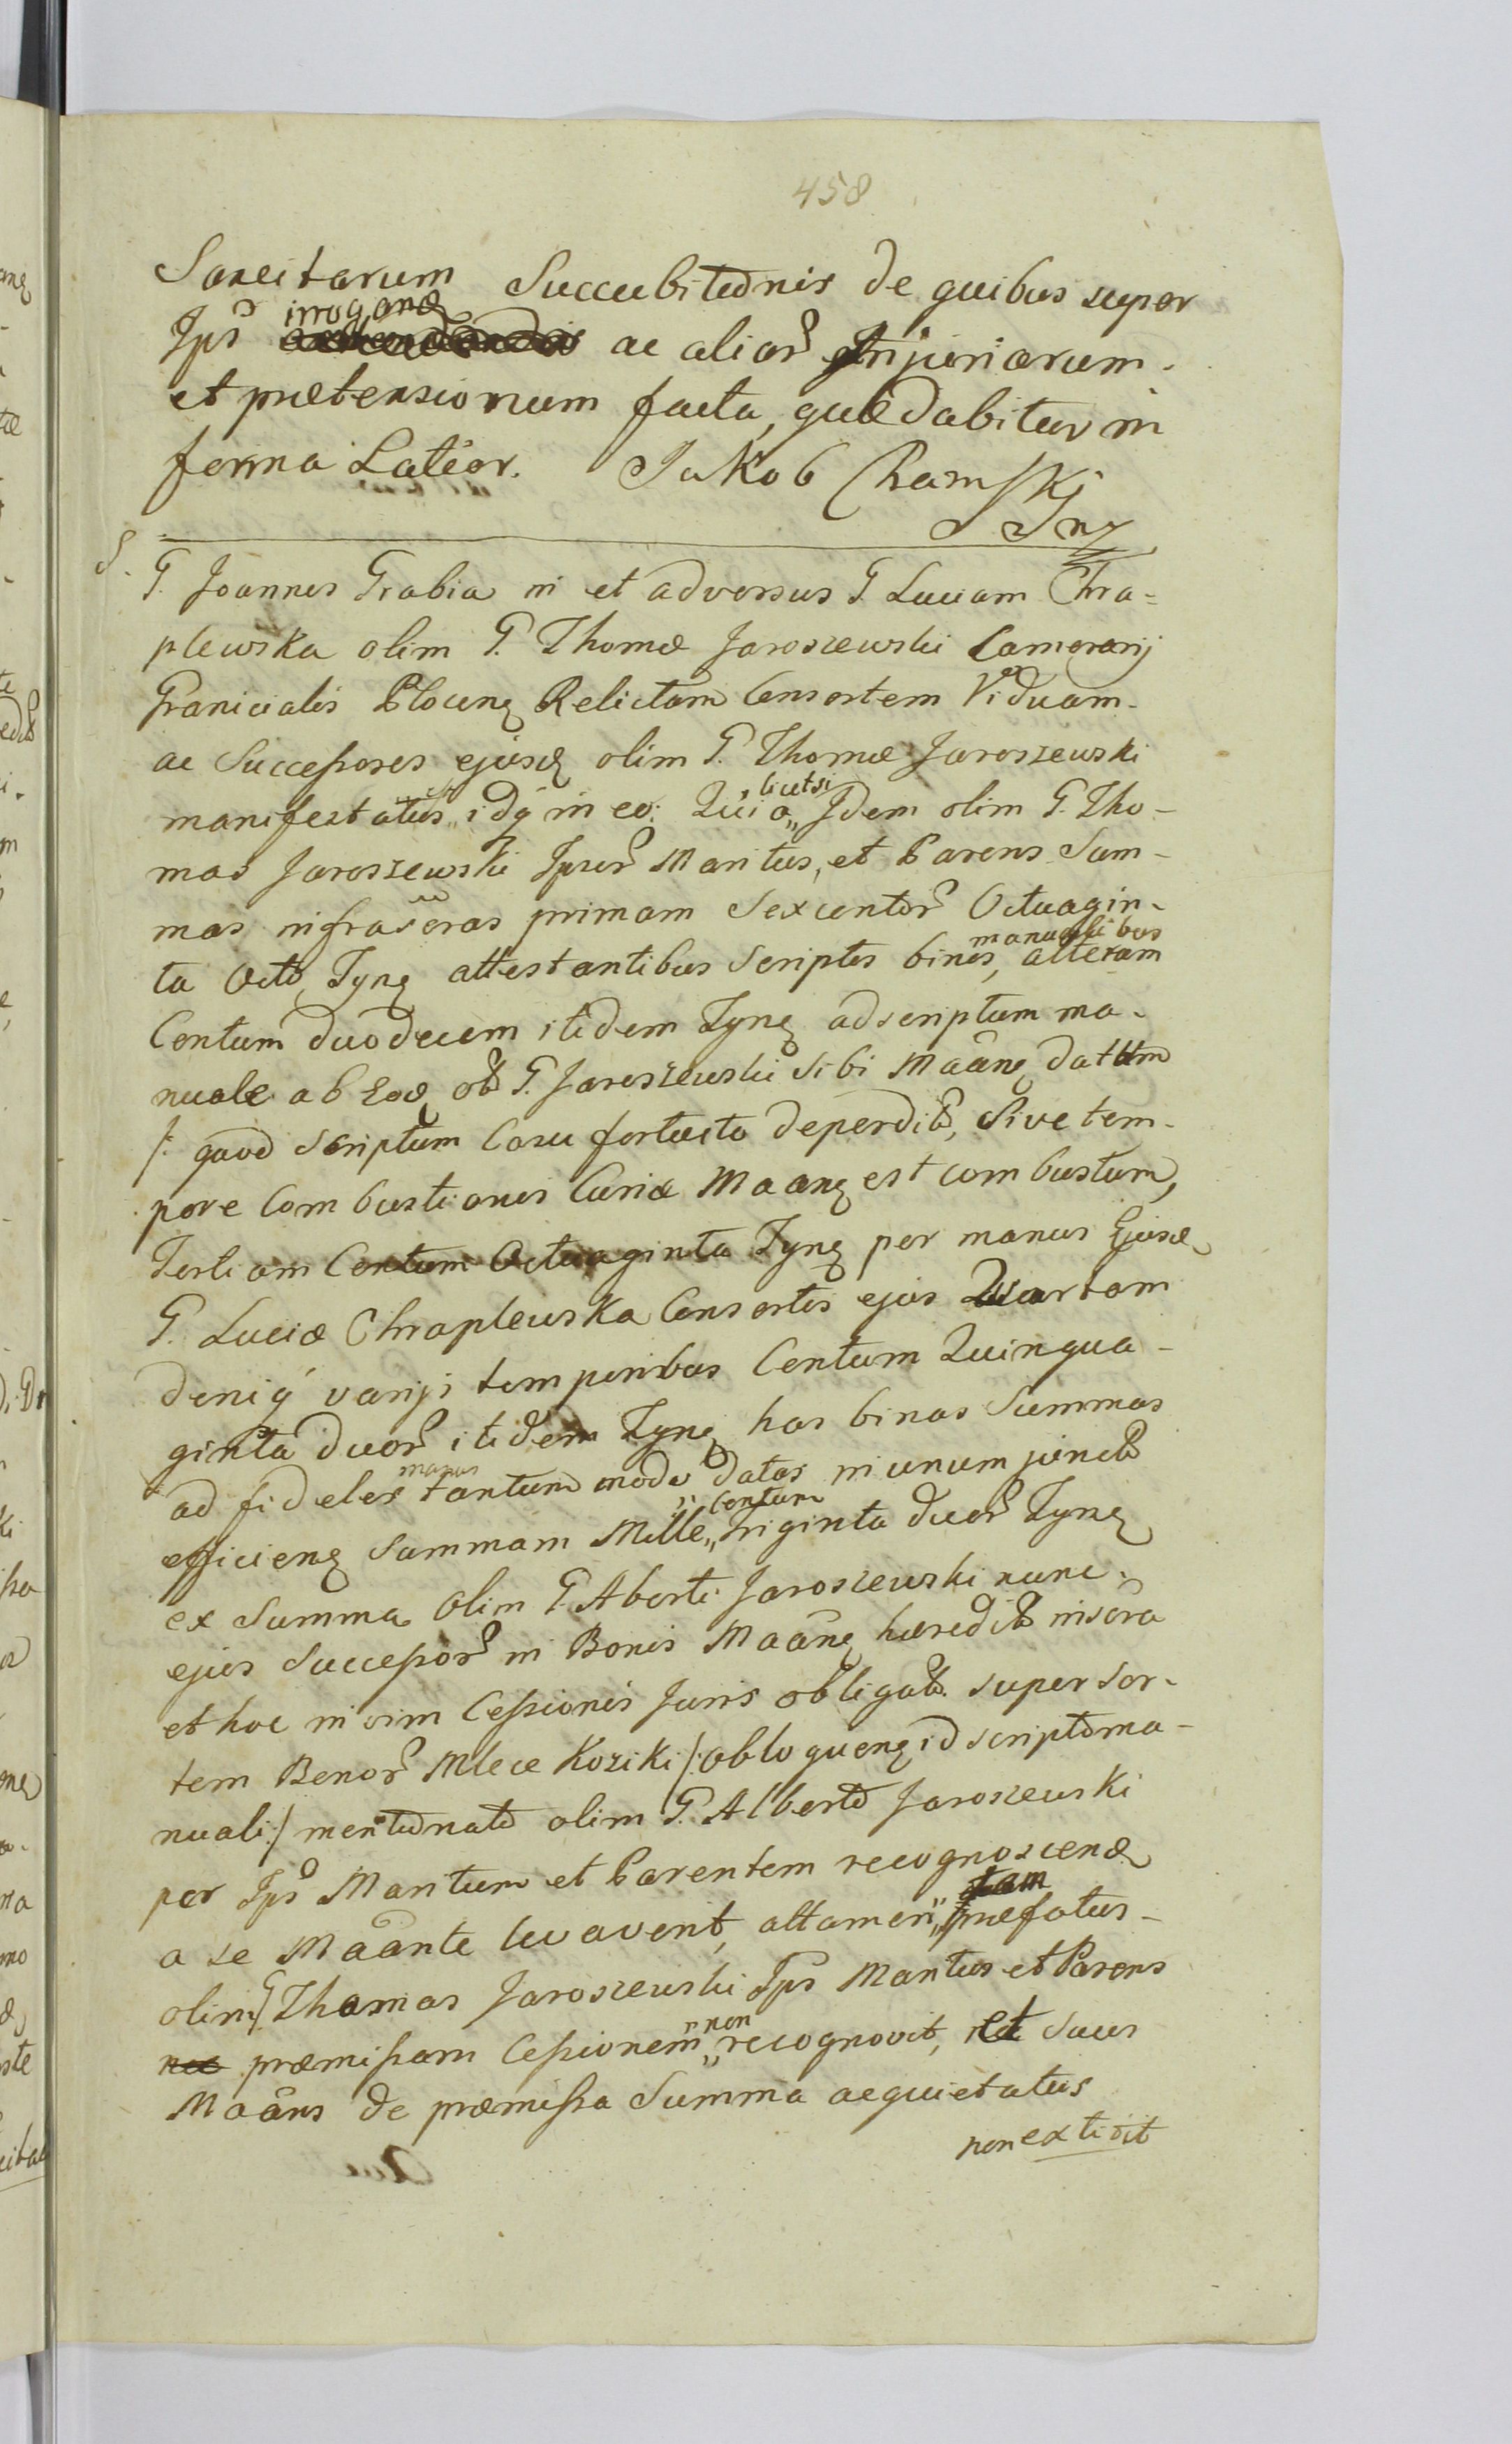 458
Sancitarum Succubitionis de quibus super
irrogand
Ips ac alior Injuriarum
et prætensionum facta, quæ dabitur in
forma Latior. Jakob Chamski
S.
G. Joannes Grabia in et adversus G. Luciam Chra=
plewska olim G. Thomæ Jaroszewski Camerarij
Granicialis Plocens Relictam Consortem Viduam
ac Successores ejusd olim G. Thomæ Jaroszewski
manifestatus est idq in eo: Quia licet si Idem olim G. Tho-
mas Jaroszewski Ipsor Maritus, et Parens Sum-
mas infrascras primam Sexcentor Octuagin-
manualibus
ta Octo, Tynf attestantibus Scriptis binis, alteram
Centum duodecem itidem Tynf ad scriptum ma-
nuale ab Eod ol G. Jaroszewski Sibi Maane datum
/: quod Scriptum Casu fortuito deperdit, Sive tem-
pore Combustionis Curiæ Maane est combustum,
Tertiam Centum Octuaginta Tynf per manus Ejusd
G. Luciæ Chraplewska Consortis ejus Quartam
deniq varijs temporibus Centum Quinqua-
ginta duor itidem Tynf has binas Summas
ad fideles manus tantum modo datas in unum junct
efficien Summam Mille Centum Triginta duor Tynf
ex Summa olim G. Alberti Jaroszewski nunc
ejus Successor in Bonis Maane hæredit inscra
et hoc in vim Cessionis Juris obligat. super Sor-
tem Bonor Mlece Koziki /: obloquen id scripto ma-
nuali :/ mentionato olim G. Alberto Jaroszewski
per Ips Maritum et Parentem recognoscend
a se Maante levaverit, attamen præfatus
olim G Thomas Jaroszewski Ips Maritus et Parens
præmissam Cessionem non recognovit, et Suus
Maans de præmissa Summa acquietatus
non extitit